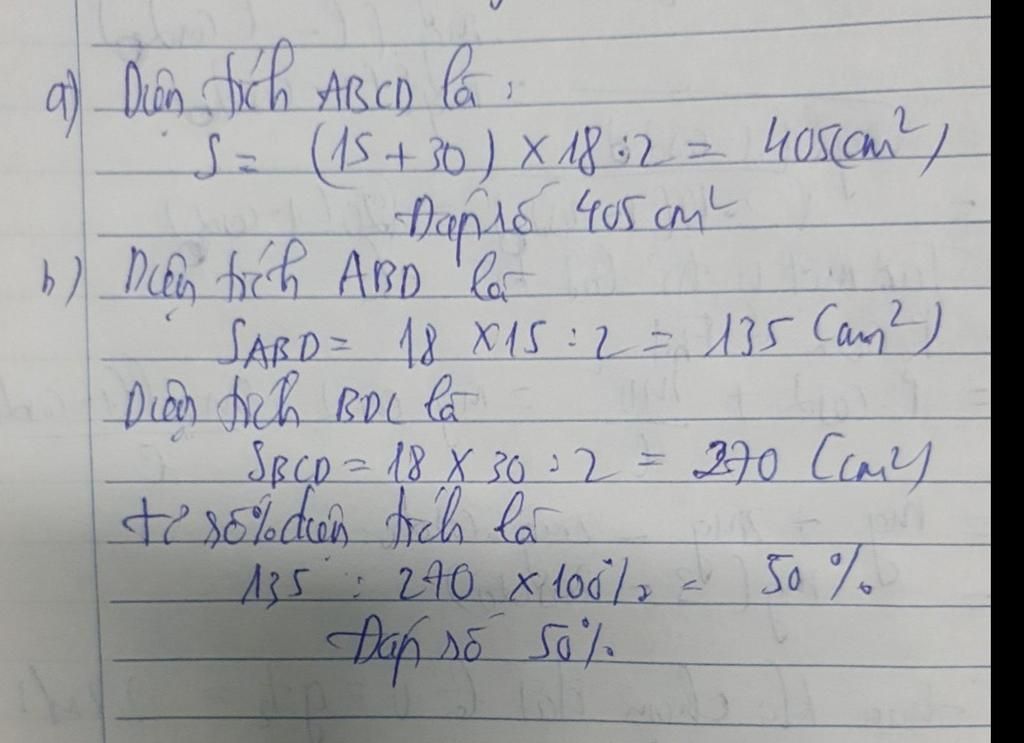 a) Diện tích ABCD là:
S = (15 + 30) × 18 : 2 = 405(cm²)
Đáp số 405 cm²
b) Diện tích ABD là
S_ABD = 18 × 15 : 2 = 135 (cm²)
Diện tích BDC là
S_BCD = 18 × 30 : 2 = 270 (cm²)
tỉ số % diện tích là
135 : 270 × 100% = 50 %
Đáp số 50%